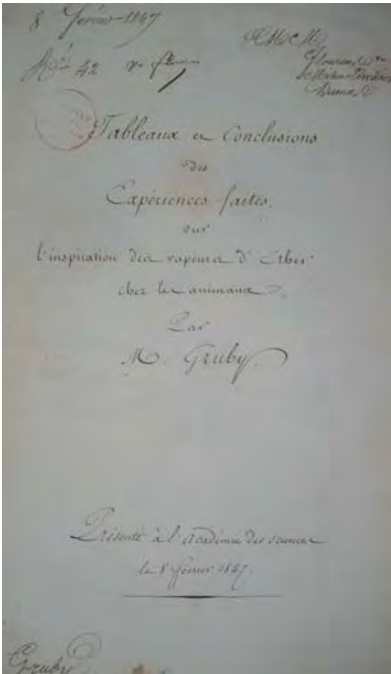 8 février 1847
MM
N° 42
Flourens
Milne-Edwards
Dumas
Tableaux et Conclusions
des
Expériences faites
sur
l'inspiration des vapeurs d'Ether
chez les animaux.
Par
M. Gruby.
Présenté à l'académie des sciences
le 8 février 1847.
Gruby